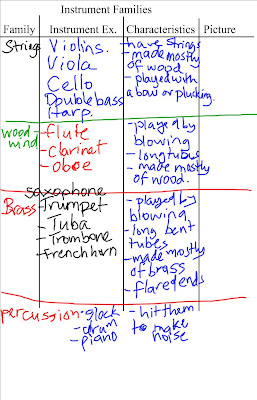 Instrument Families
Family Instrument Ex. Characteristics Picture
Strings Violins. - have strings
Viola - made mostly of wood
Cello - played with a bow or plucking.
Double bass
Harp.
wood- wind - flute - played by blowing
- Clarinet - long tubes
- oboe - made mostly of wood.
saxophone
Brass - Trumpet - played by blowing
- Tuba - long bent tubes
- Trombone - made mostly of brass
- frenchhorn - flared ends
percussion - glock - hit them to make noise
- drum
- piano